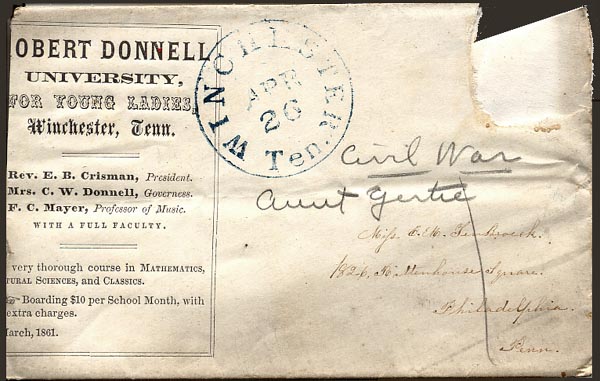 OBERT DONNELL
UNIVERSITY,
FOR YOUNG LADIES,
Winchester, Tenn.
Rev. E. B. Crisman, President.
Mrs. C. W. Donnell, Governess.
F. C. Mayer, Professor of Music.
WITH A FULL FACULTY.
very thorough course in MATHEMATICS,
TURAL SCIENCES, and CLASSICS.
☞ Boarding $10 per School Month, with
extra charges.
March, 1861.
WINCHESTER Ten.
APR
26
Civil War
Aunt Gertie
Miss E. M. TenBroeck.
1826, Rittenhouse Square.
Philadelphia.
Penn.